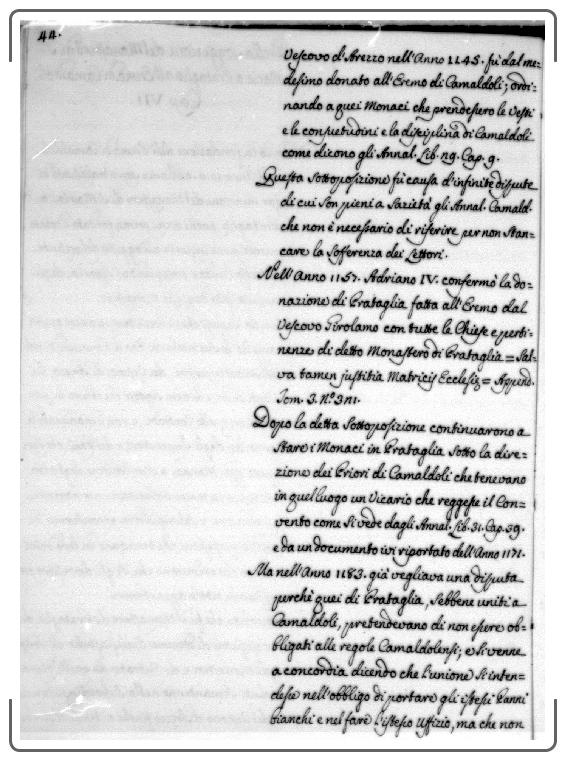 44.
Vescovo d'Arezzo nell'Anno 1145. fù dal me=
desimo donato all'Eremo di Camaldoli; ordi=
nando a quei Monaci che prendessero le Vesti
e le consuetudini e la disciplina di Camaldoli
come dicono gli Annal. Lib. 29. Cap. 9.
Questa sottoposizione fù causa d'infinite dispute
di cui son pieni a sazietà gli Annal. Camald.
che non è necessario di riferire per non stan=
care la sofferenza dei Lettori.
Nell'Anno 1157. Adriano IV. confermò la do=
nazione di Prataglia fatta all'Eremo dal
Vescovo Girolamo con tutte le Chiese e perti=
nenze di detto Monastero di Prataglia = Sal=
va tamen justitia Matricis Ecclesiæ = Append.
Tom. 3. N.º 311.
Dopo la detta sottoposizione continuarono a
stare i Monaci in Prataglia sotto la dire=
zione dei Priori di Camaldoli che tenevano
in quel luogo un Vicario che reggesse il Con=
vento come si vede dagli Annal. Lib. 31. Cap. 39.
e da un documento ivi riportato dell'Anno 1171.
Ma nell'Anno 1183. già vegliava una disputa
perchè quei di Prataglia, sebbene uniti a
Camaldoli, pretendevano di non essere ob=
bligati alle regole Camaldolensi; e si venne
a concordia dicendo che l'unione s'inten=
desse nell'obbligo di portare gli istessi Panni
bianchi e nel fare l'istesso Uffizio, ma che non